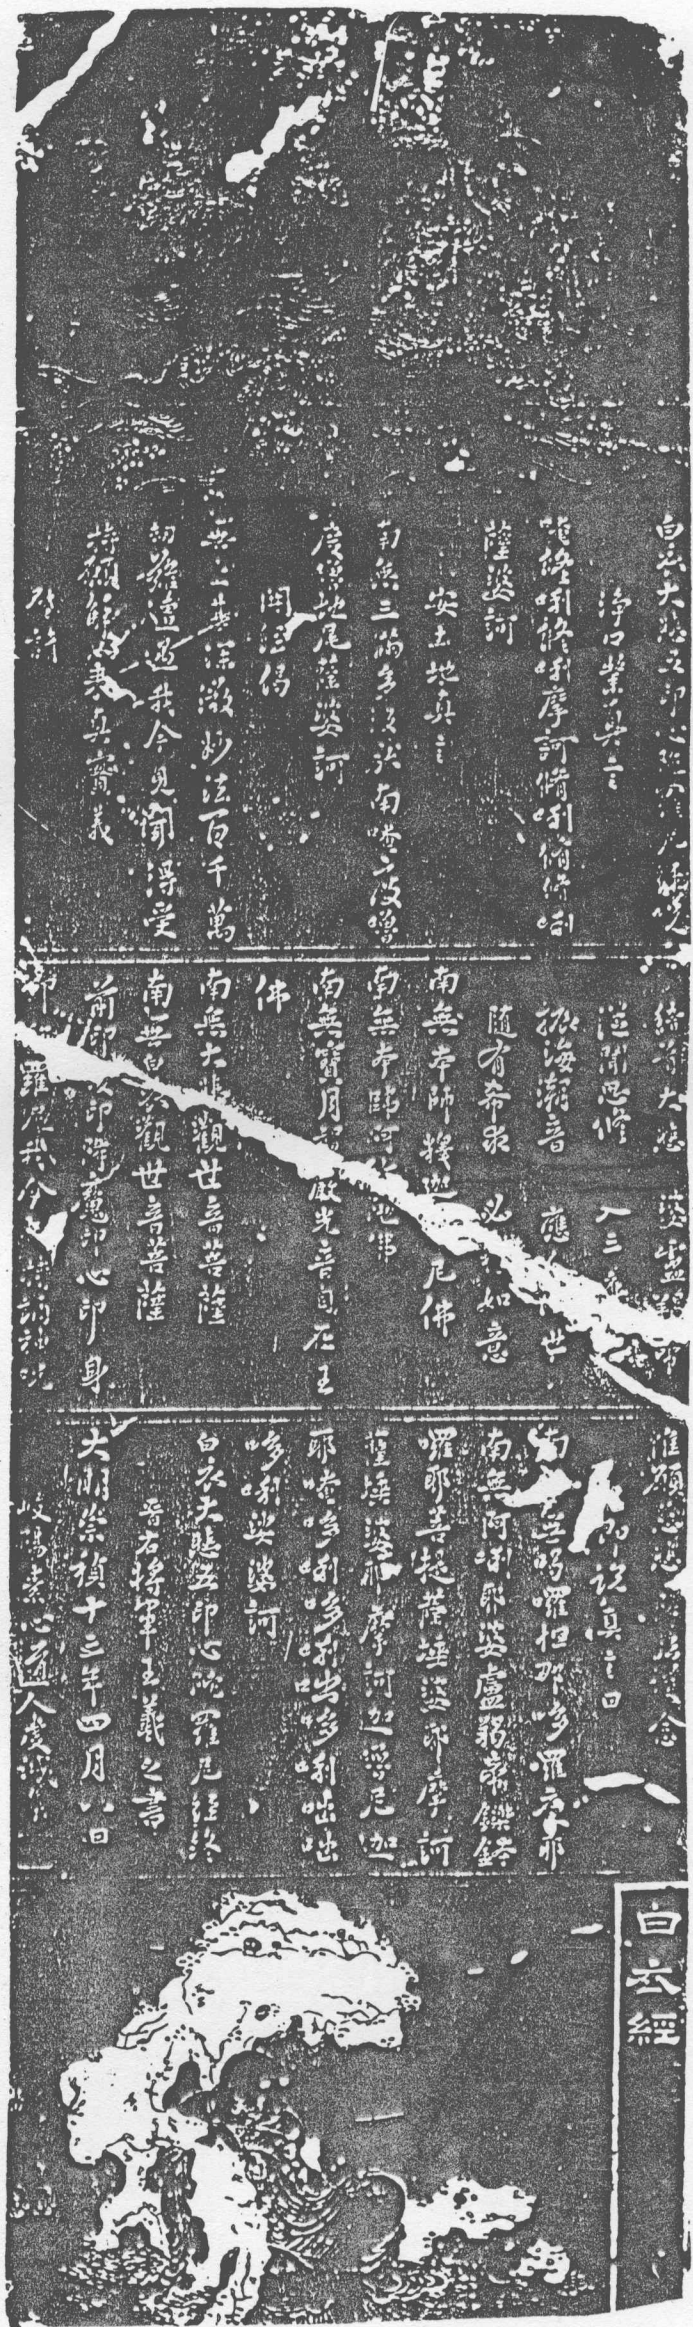 白衣大悲五印心陀羅尼經
淨口業真言
唵修唎修唎摩訶修唎修修唎
薩婆訶
安土地真言
南無三滿多沒馱南唵度嚕
度嚕地尾薩婆訶
開經偈
無上甚深微妙法百千萬
劫難遭遇我今見聞得受
持願解如來真實義
啓請
稽首大悲 婆盧羯帝
從聞思修 入三
振海潮音 應 世
隨有希求 必 如意
南無本師釋迦 尼佛
南無本師阿 佛
南無寶月智 光音自在王
佛
南無大悲觀世音菩薩
南無白衣觀世音菩薩
前印 印降魔印心印身
印 羅尼我今 持誦神咒
惟願慈悲 念
即說真言曰
南無喝囉怛那哆羅夜耶
南無阿唎耶婆盧羯帝鑠鉢
囉耶菩提薩埵婆耶摩訶
薩埵婆耶摩訶迦盧尼迦
耶唵哆唎哆唎咄哆唎咄咄
哆唎娑婆訶
白衣大悲五印心陀羅尼經終
晉右將軍王羲之書
大明崇禎十三年四月八日
岐陽素心道人
白衣經